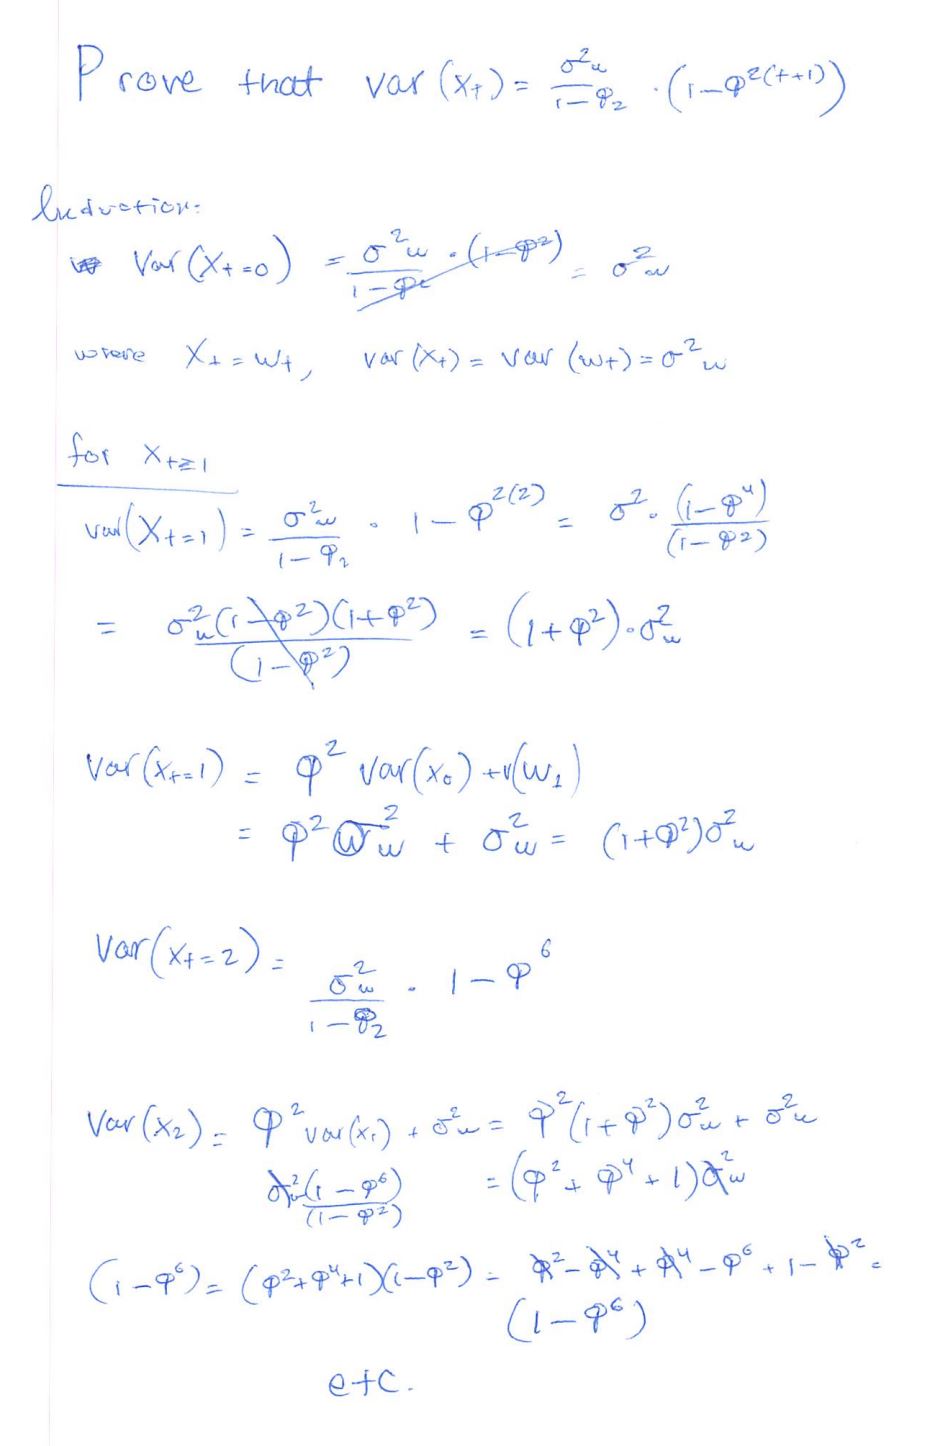 Prove that var(x_t) = σ²_w / (1-φ_2) · (1-φ^{2(t+1)})
Induction:
Var(X_{t=0}) = σ²_w / (1-φ²) · (1-φ²) = σ²_w
where X_t = w_t, var(X_t) = var(w_t) = σ²_w
for X_{t≥1}
var(X_{t=1}) = σ²_w / (1-φ_2) · 1-φ^{2(2)} = σ² · (1-φ⁴) / (1-φ²)
= σ²_w(1-φ²)(1+φ²) / (1-φ²) = (1+φ²)·σ²_w
Var(X_{t=1}) = φ² var(x_0) + v(w_1)
= φ² σ²_w + σ²_w = (1+φ²)σ²_w
Var(X_{t=2}) = σ²_w / (1-φ_2) · 1-φ⁶
Var(x_2) = φ² var(x_1) + σ²_w = φ²(1+φ²)σ²_w + σ²_w
σ²_w(1-φ⁶) / (1-φ²) = (φ²+φ⁴+1)σ²_w
(1-φ⁶) = (φ²+φ⁴+1)(1-φ²) = φ²-φ⁴+φ⁴-φ⁶+1-φ² =
(1-φ⁶)
etc.